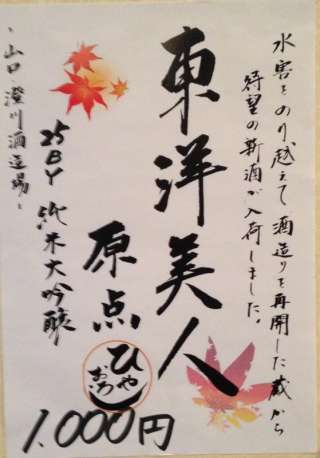 水害をのり越えて酒造りを再開した蔵から
待望の新酒が入荷しました。
東洋美人
原点
ひやおろし
25BY 純米大吟醸
~山口・澄川酒造場~
1,000円